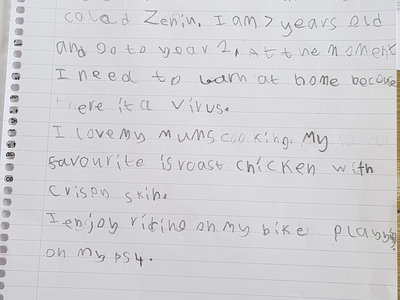 colad Zenin. I am 7 years old
and go to year 2. At the moment
I need to learn at home because
there it a virus.
I love my mums cooking. My
favourite is roast chicken with
crispy skin.
I enjoy riting on my bike playing
on my ps4.